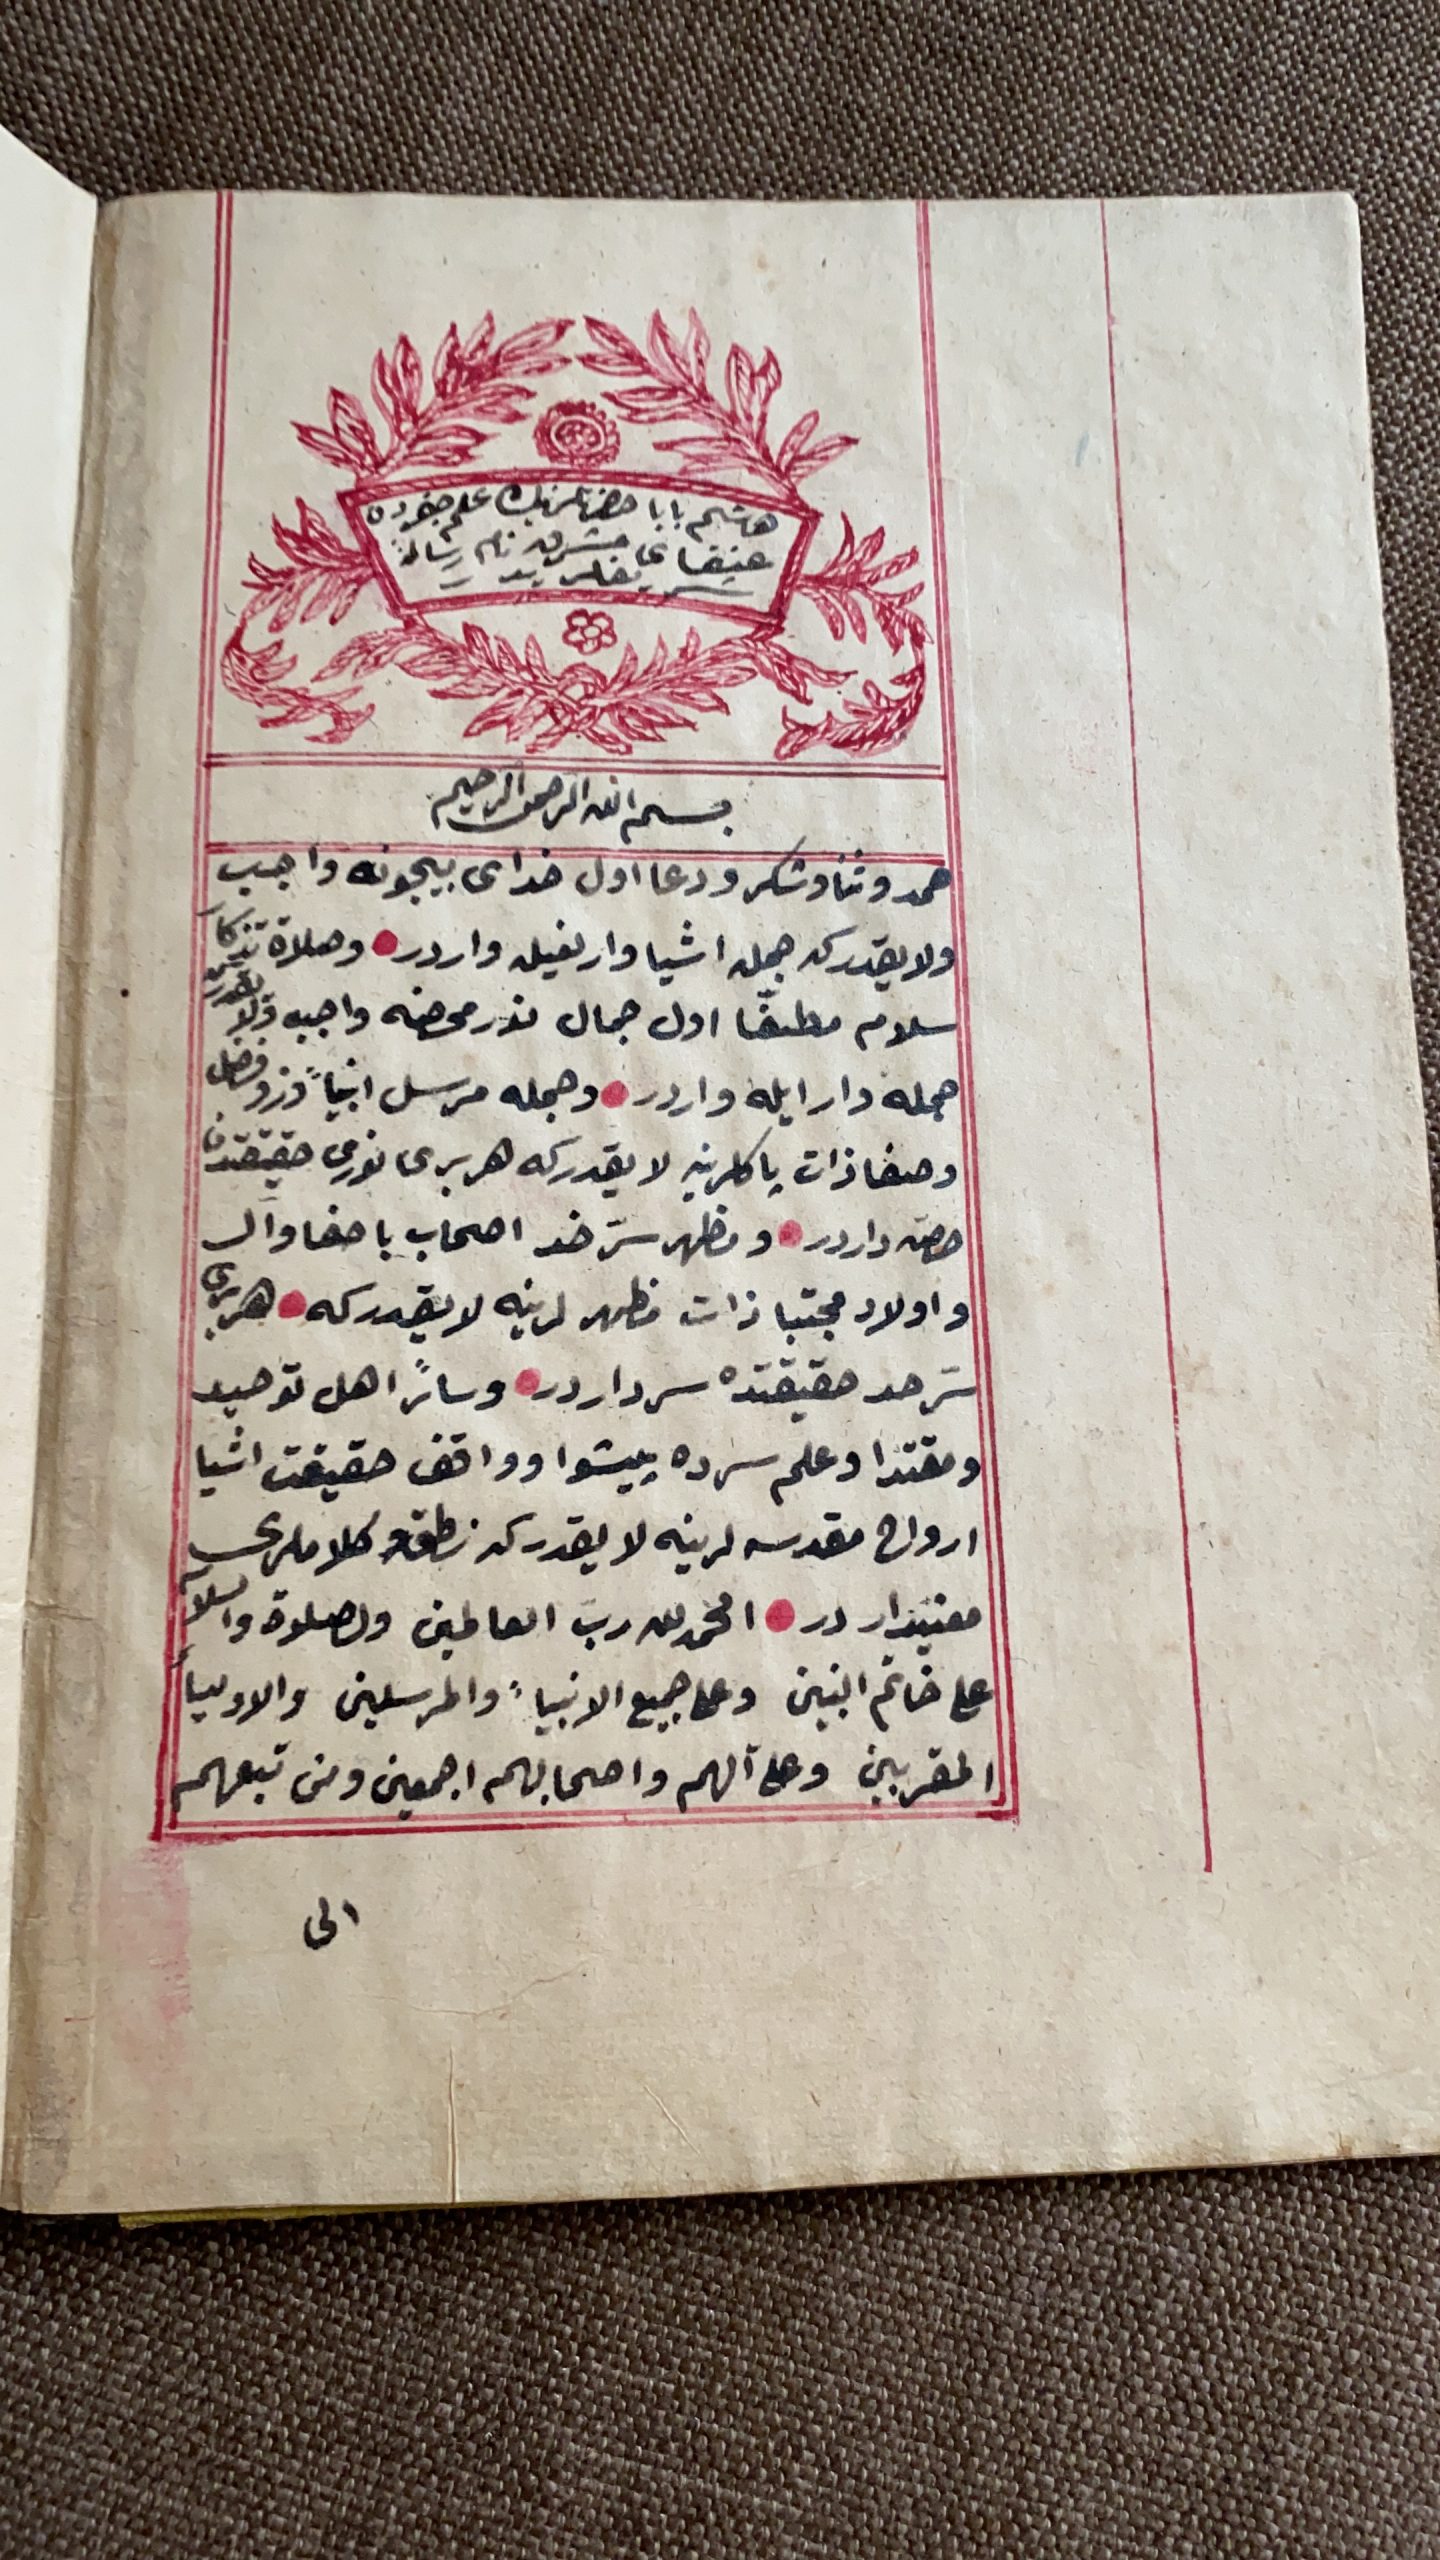 هاشم بابا حضرتلرينك علم جفردن
عنقاى مشرق نام رسالهٔ
شريفلريدر
بسم الله الرحمن الرحيم
حمد و ثنا و شكر و دعا اول خداى بيچونه واجب
ولايقدركه جمله اشيا وارلغيله واردر وصلاة
سلام مطلقا اول جمال نور محضه واجب ولايقدركه
جمله وار ايله واردر وجمله مرسل انبياً
وصفا ذات پاكلرينه لايقدركه هربرى نورمى حقيقتدن
حصه داردر ومظهر سرّ خدا اصحاب باصفا وآل
واولاد مجتبا ذات مظهرلرينه لايقدركه هربرى
سرّحد حقيقتده سرداردر وسائر اهل توحيد
ومقتدا وعلم سرده پيشوا وواقف حقيقت اشيا
ارواح مقدسه لرينه لايقدركه نطق و كلاملرى
معنيدار در الحمد لله ربّ العالمين والصلاة والسلام
على خاتم النبين وعلى جميع الانبياً والمرسلين والاولياً
المقربين وعلى آلهم واصحابهم اجمعين ومن تبعهم
الى